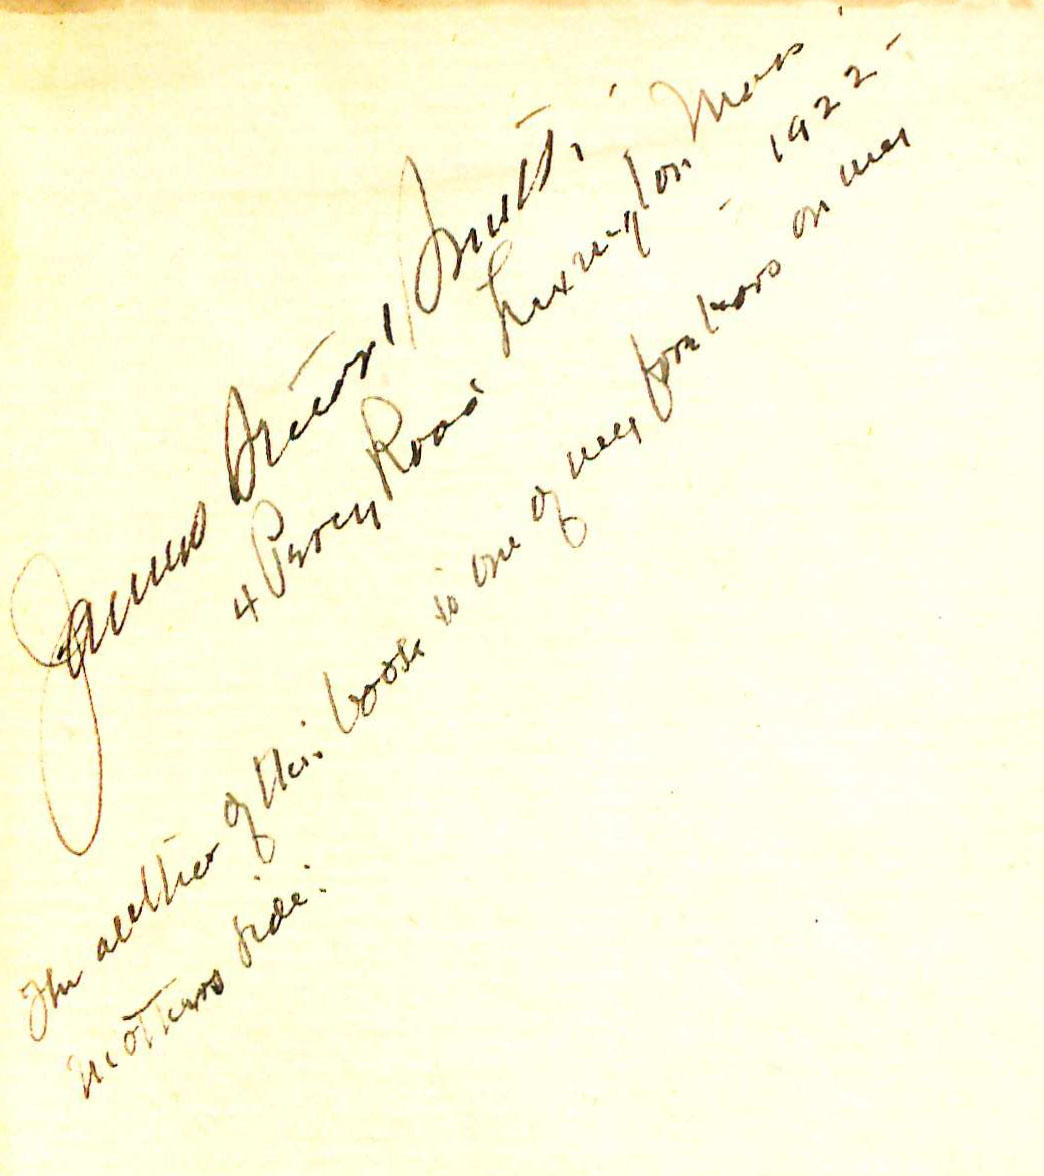 James Smith.
4 Percy Road Lexington Mass
- 1922 -
The author of this book is one of my forebears on my
mothers side.